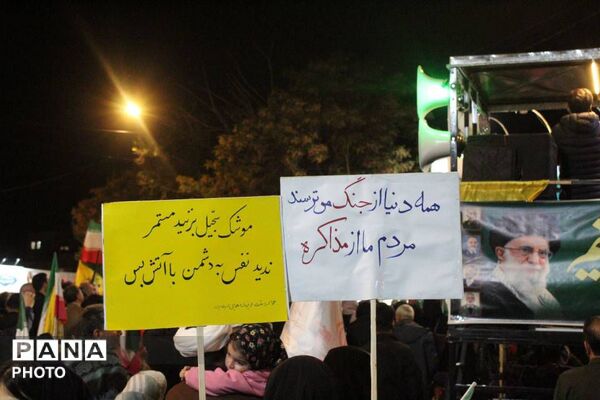 موشک سجیل بزنید مستمر
ندید نفس به دشمن با آتش بس
همه دنیا از جنگ موترسند
مردم ما از مذاکره
PANA
PHOTO